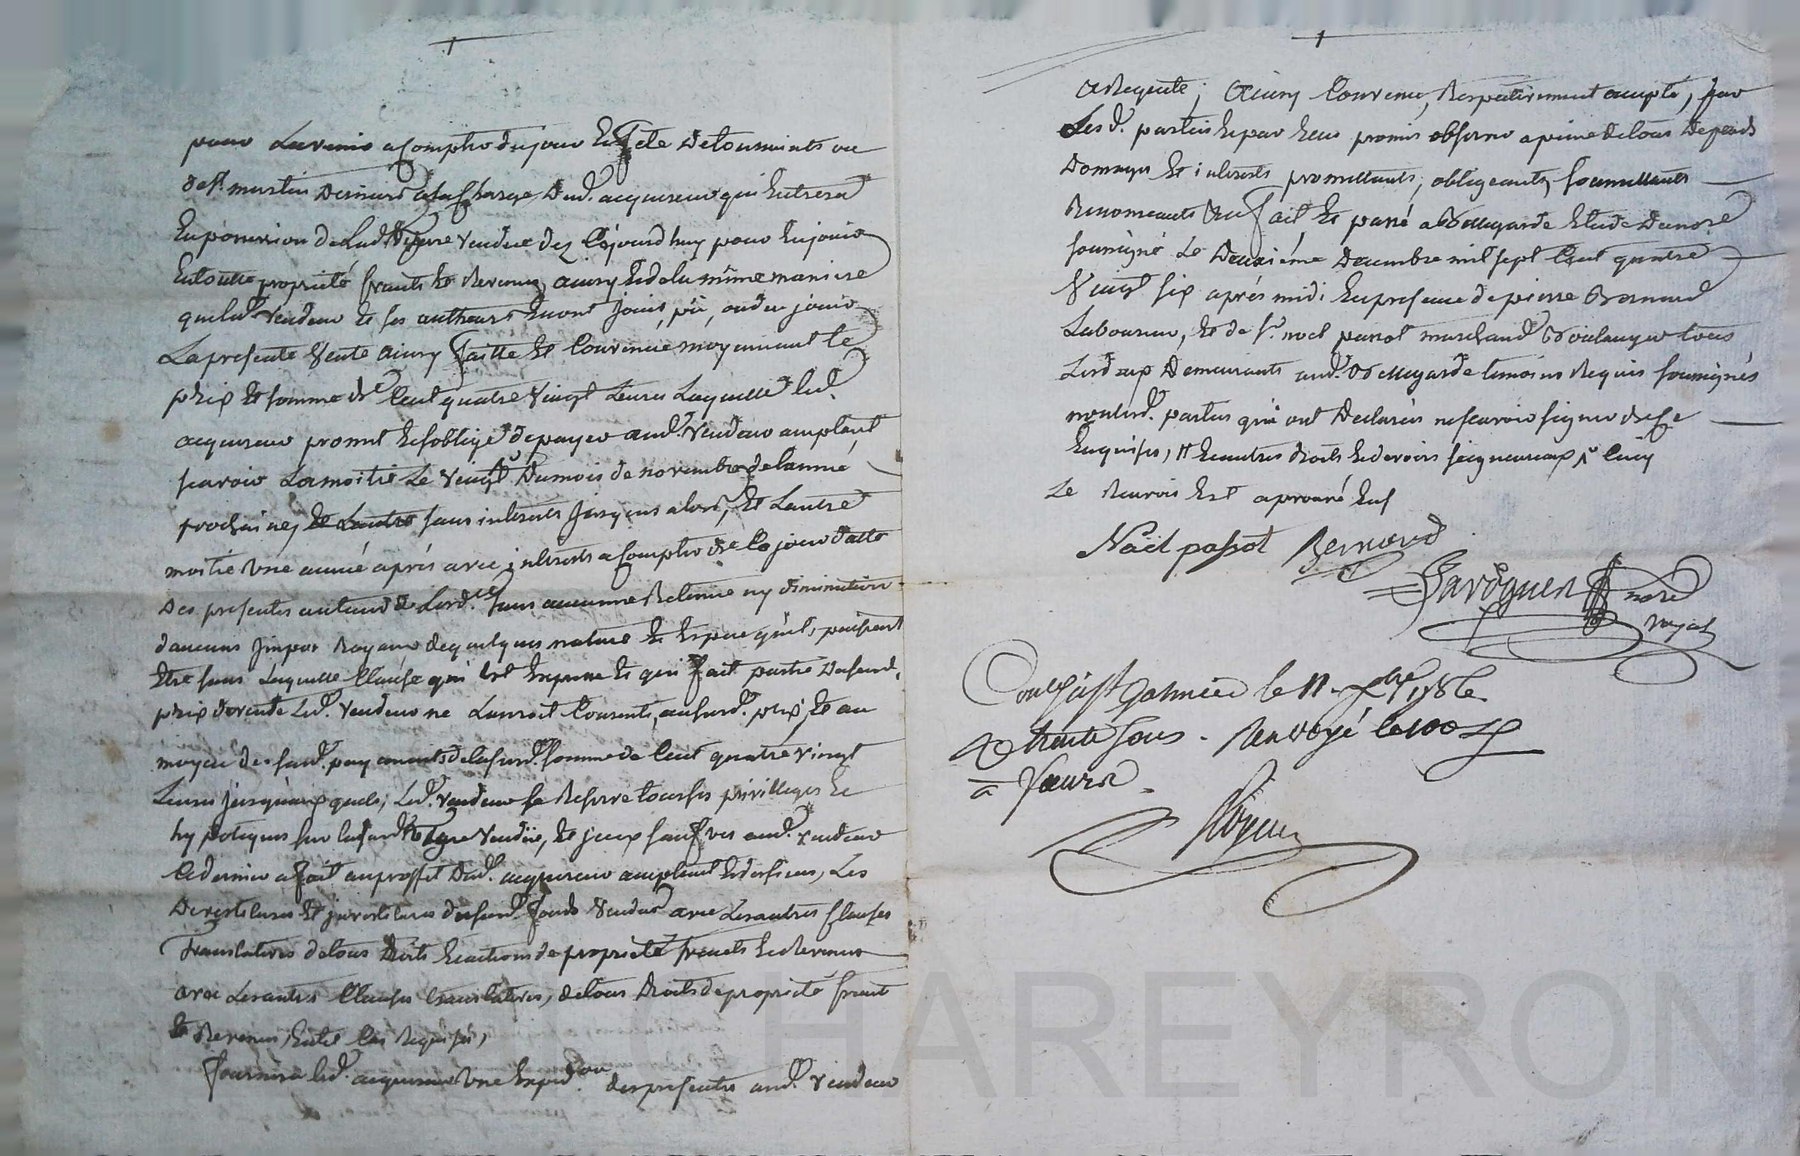 pour L'avenir a Compter du jour Et fete De tous saints ou
de St. martin Dernier a la Charge Dud. acquereur qui Entrera
En possession de Lad. vigne vendue dez Cejourdhuy pour En jouir
En toutte propriété fruits Et Revenus ainsy Et de la même maniere
que led. Vendeur Et ses autheurs En ont joui, pû, ou du jouir
La presente Vente ainsy faitte Et Convenue moyennant le
prix Et somme de Cent quatre Vingt Livres Laquelle led.
acquereur promet Et s'oblige de payer aud. Vendeur acceptant
scavoir La moitié Le Vingt Du mois de novembre de l'année
prochaine, Et L'autre sans interests jusques alors, Et L'autre
moitié Une année aprés avec interests a Compter de Ce jour datte
Des presentes
d'aucuns impots Royaux de quelques nature Et Espece qu'ils puissent
Etre sans Laquelle Clause qui Est Expresse Et qui fait partie Dususd.
prix de vente Led. Vendeur ne L'auroit Consenti, aususd. prix, Et au
moyen des susd. payements de lasusd. somme de Cent quatre vingt
Livres jusqu'auxquels, Led. Vendeur se Reserve tous ses privilleges Et
hypoteques sur lasusd. vigne Vendüe, Et jceux saufves aud. vendeur
Ce dernier a fait au proffit Dud. acquereur acceptant les
Devestitures Et jnvestitures dususd. fonds Vendus avec Les autres Clauses
Translatives de tous Droits Et actions de propriété fruits Et Revenus
avec Les autres Clauses translatives, de tous Droits de propriété fruit
Et Revenus, En tel Cas Requises,
fournira led. acquereur Une Expedon des presentes aud. Vendeur
a Requete; ainsy Convenu, Respectivement accepté, par
Lesd. parties Et par Eux promis observer a peine de tous Depends
Domages Et interests promettants, obligeants, soumettants
Renonceants &c fait Et passé a Bellegarde Etude Du nore
soussigné Le Deuxiéme Decembre mil sept Cent quatre
Vingt six aprés midi En presence de pierre Bernard
Laboureur, Et de Sr. noel passot marchand Boulanger tous
Les deux Demeurants aud. Bellegarde temoins Requis soussignés
non lesd. parties qui ont Declarées ne scavoir signer de Ce
Enquises, Et autres droits Et devoirs seigneuriaux
Le Renvois Est aprouvé
Noël passot Bernard
nore
royal
Conlé a St Galmier le 11 Xbre 1786
R trente sous. Renvoyé le 100e
a